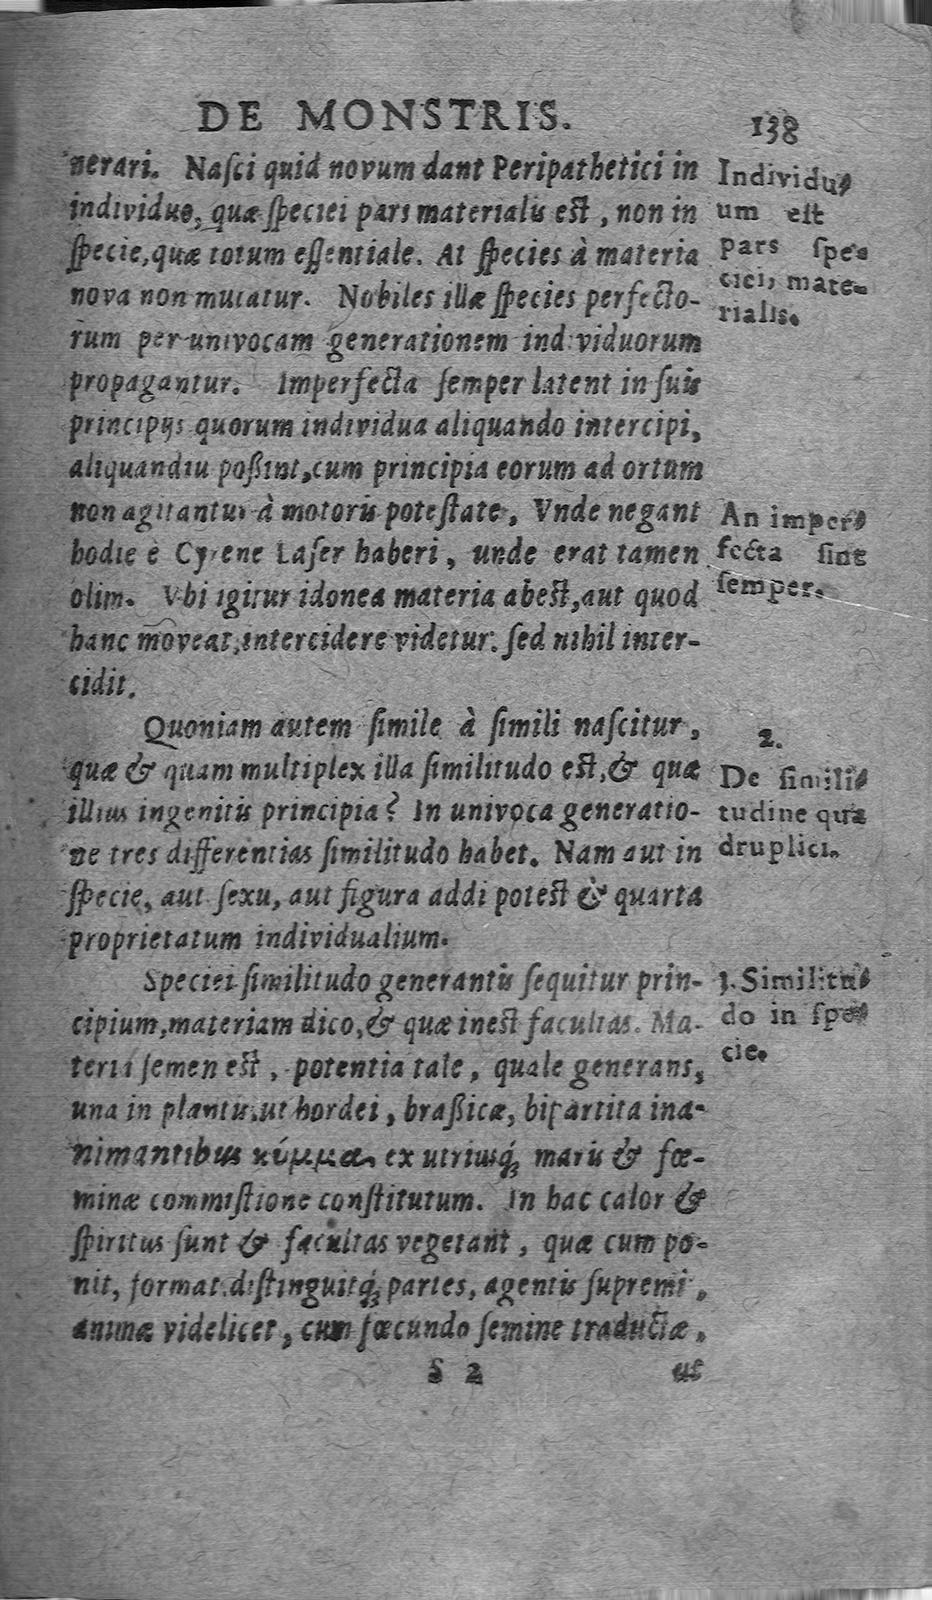 DE MONSTRIS.
138
nerari. Naſci quid novum dant Peripathetici in
individuo, quæ ſpeciei pars materialis eſt, non in
ſpecie, quæ totum eſſentiale. At ſpecies à materia
nova non mutatur. Nobiles illæ ſpecies perfecto-
rum per univocam generationem individuorum
propagantur. Imperfecta ſemper latent in ſuis
principijs quorum individua aliquando intercipi,
aliquandiu poßint, cum principia eorum ad ortum
non agitantur à motoris poteſtate, Vnde negant
hodie è Cyrene Laſer haberi, unde erat tamen
olim. Vbi igitur idonea materia abeſt, aut quod
hanc moveat, intercidere videtur: ſed nihil inter-
cidit.
Quoniam autem ſimile à ſimili naſcitur,
quæ & quam multiplex illa ſimilitudo eſt, & quæ
illius ingenitis principia? In univoca generatio-
ne tres differentias ſimilitudo habet. Nam aut in
ſpecie, aut ſexu, aut figura addi poteſt & quarta
proprietatum individualium.
Speciei ſimilitudo generantis ſequitur prin-
cipium, materiam dico, & quæ ineſt facultas. Ma-
teria ſemen eſt, potentia tale, quale generans,
una in plantis, ut hordei, braßicæ, bipartita ina-
nimantibus κύμμα, ex utriusq́; maris & fœ-
minæ commiſtione conſtitutum. In hac calor &
ſpiritus ſunt & facultas vegetant, quæ cum po-
nit, format, diſtinguitq́; partes, agentis ſupremi,
animæ videlicet, cum fœcundo ſemine traductæ,
S 2 ut
Individu-
um eſt
pars ſpe-
ciei, mate-
rialis.
An imper-
fecta ſint
ſemper.
2.
De ſimili-
tudine qua
druplici.
1. Similitu-
do in ſpe-
cie.